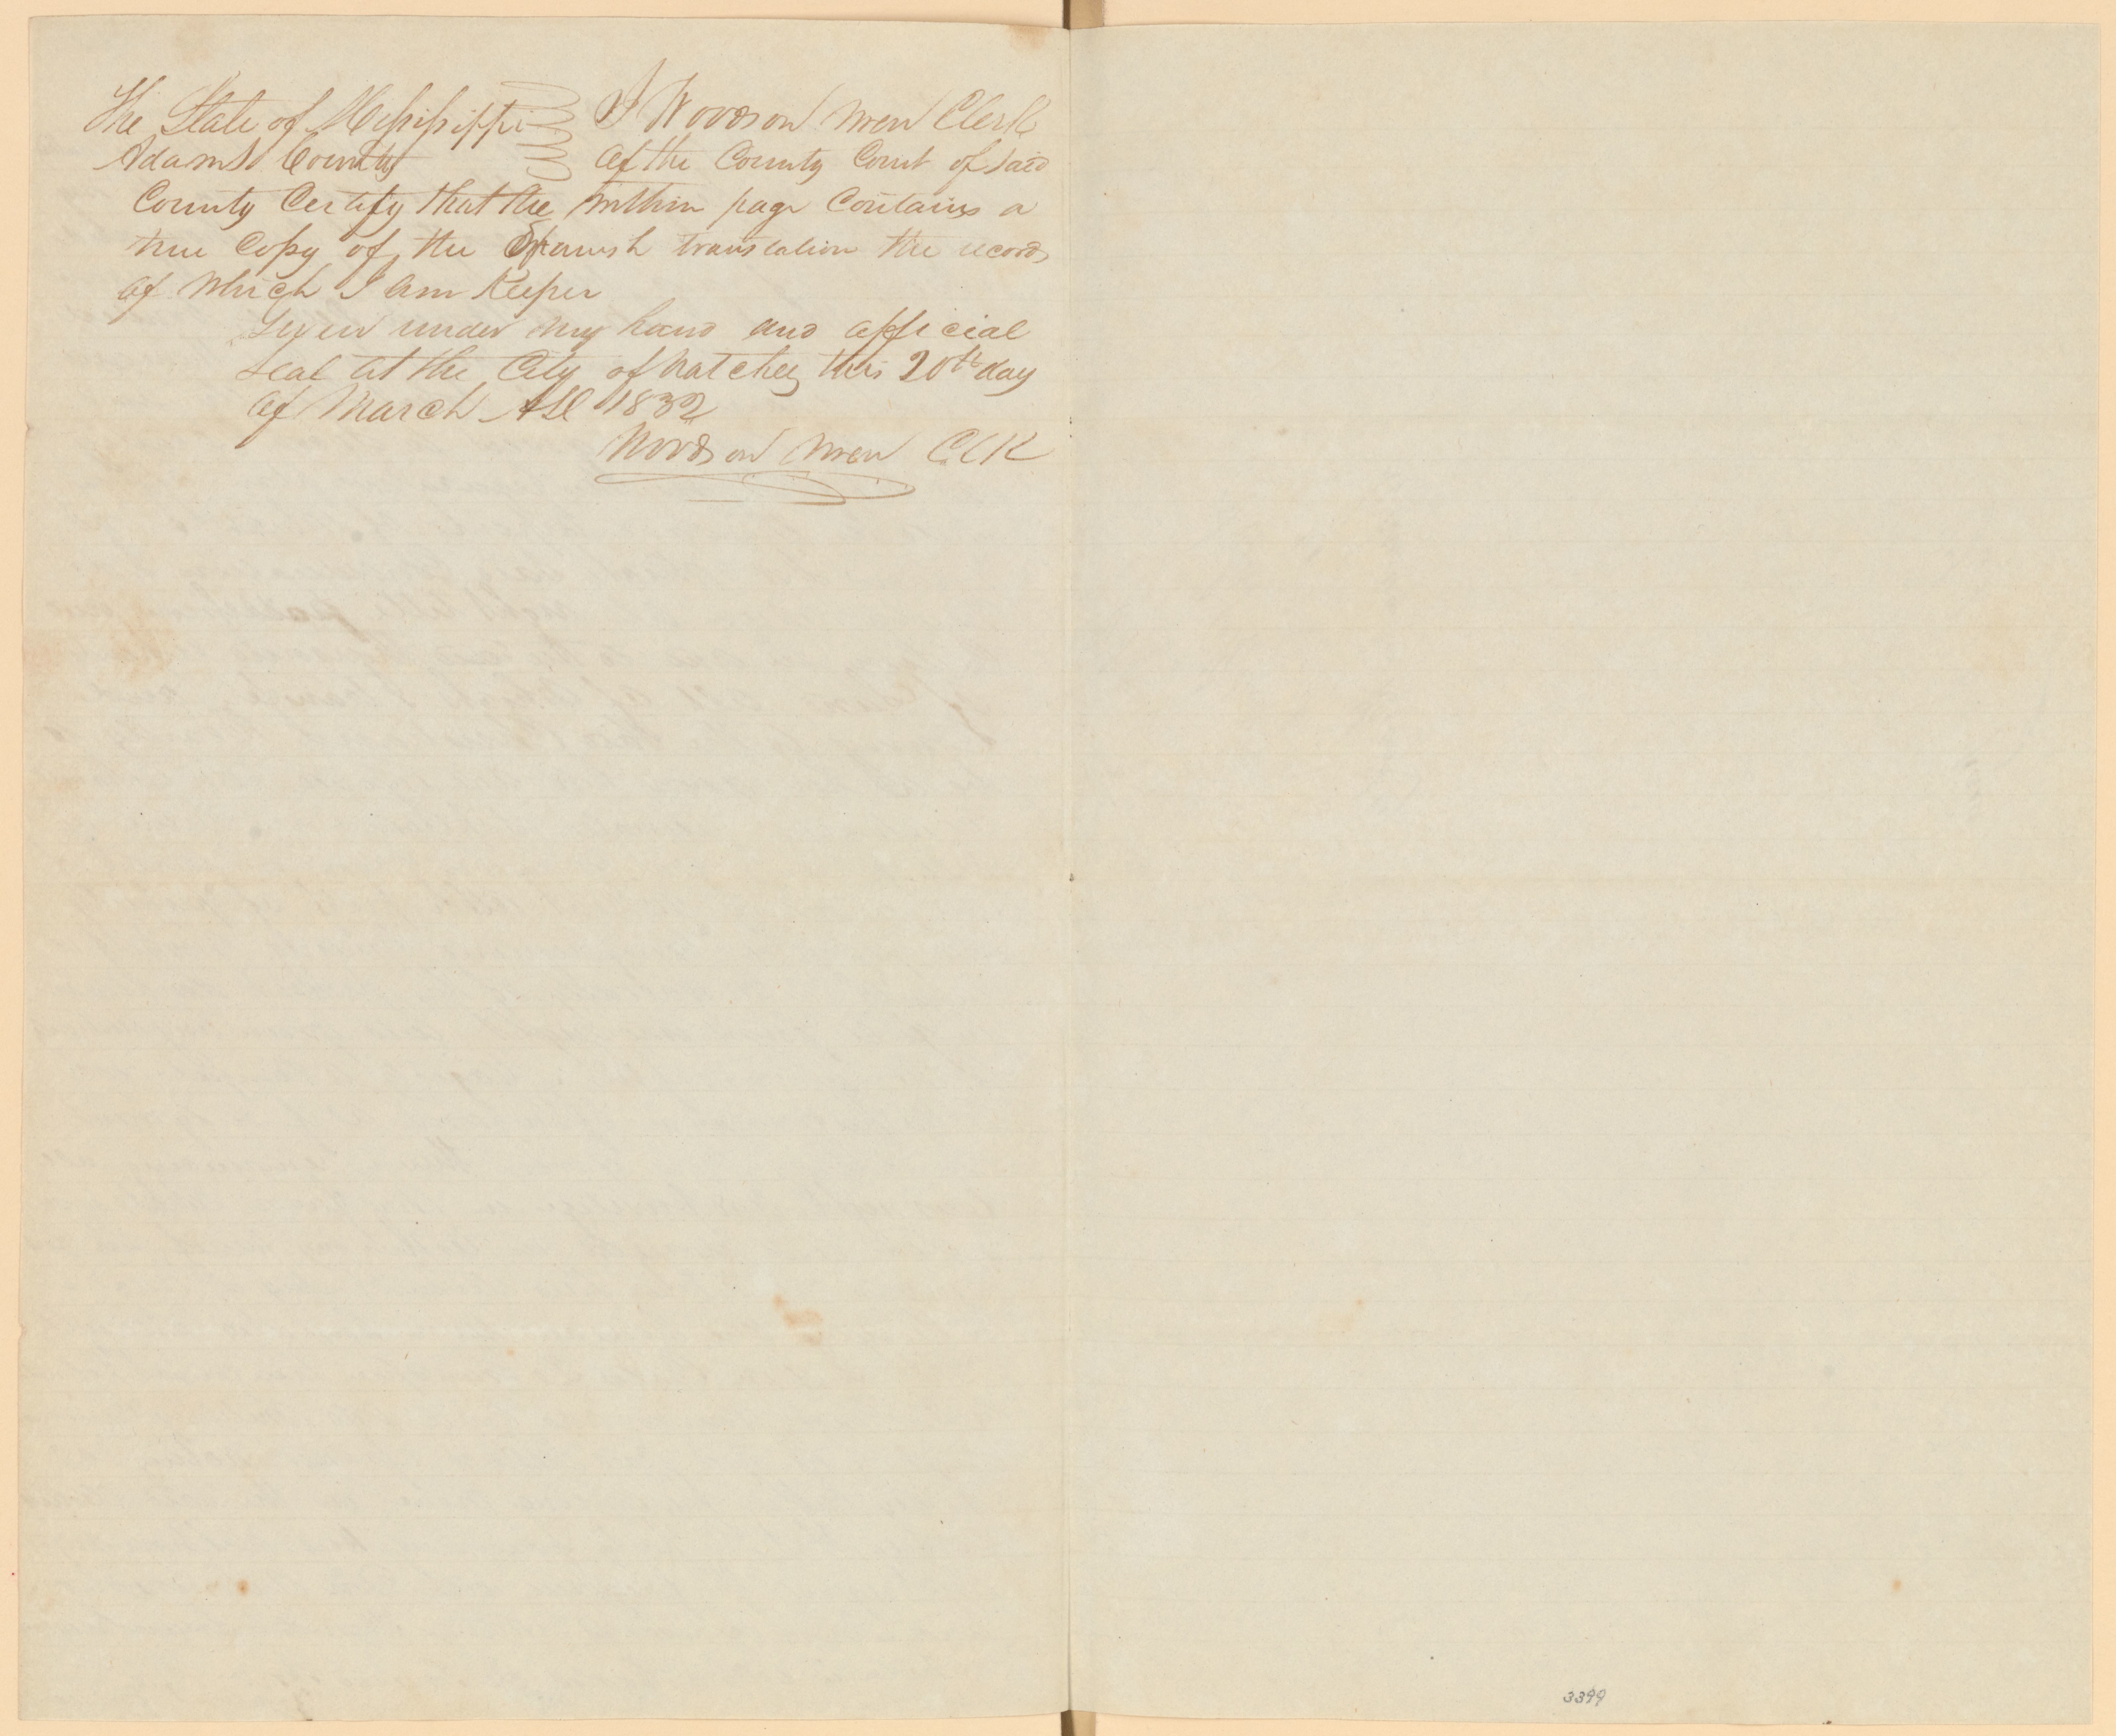 The State of Mississippi I Woodson Wren Clerk
Adams County of the County Court of said
County Certify that the within page Contains a
true Copy of the Spanish translation the records
of which I am Keeper
Given under my hand and official
seal at the City of Natchez this 20th day
of March AD 1832
Woodson Wren Clk
3399